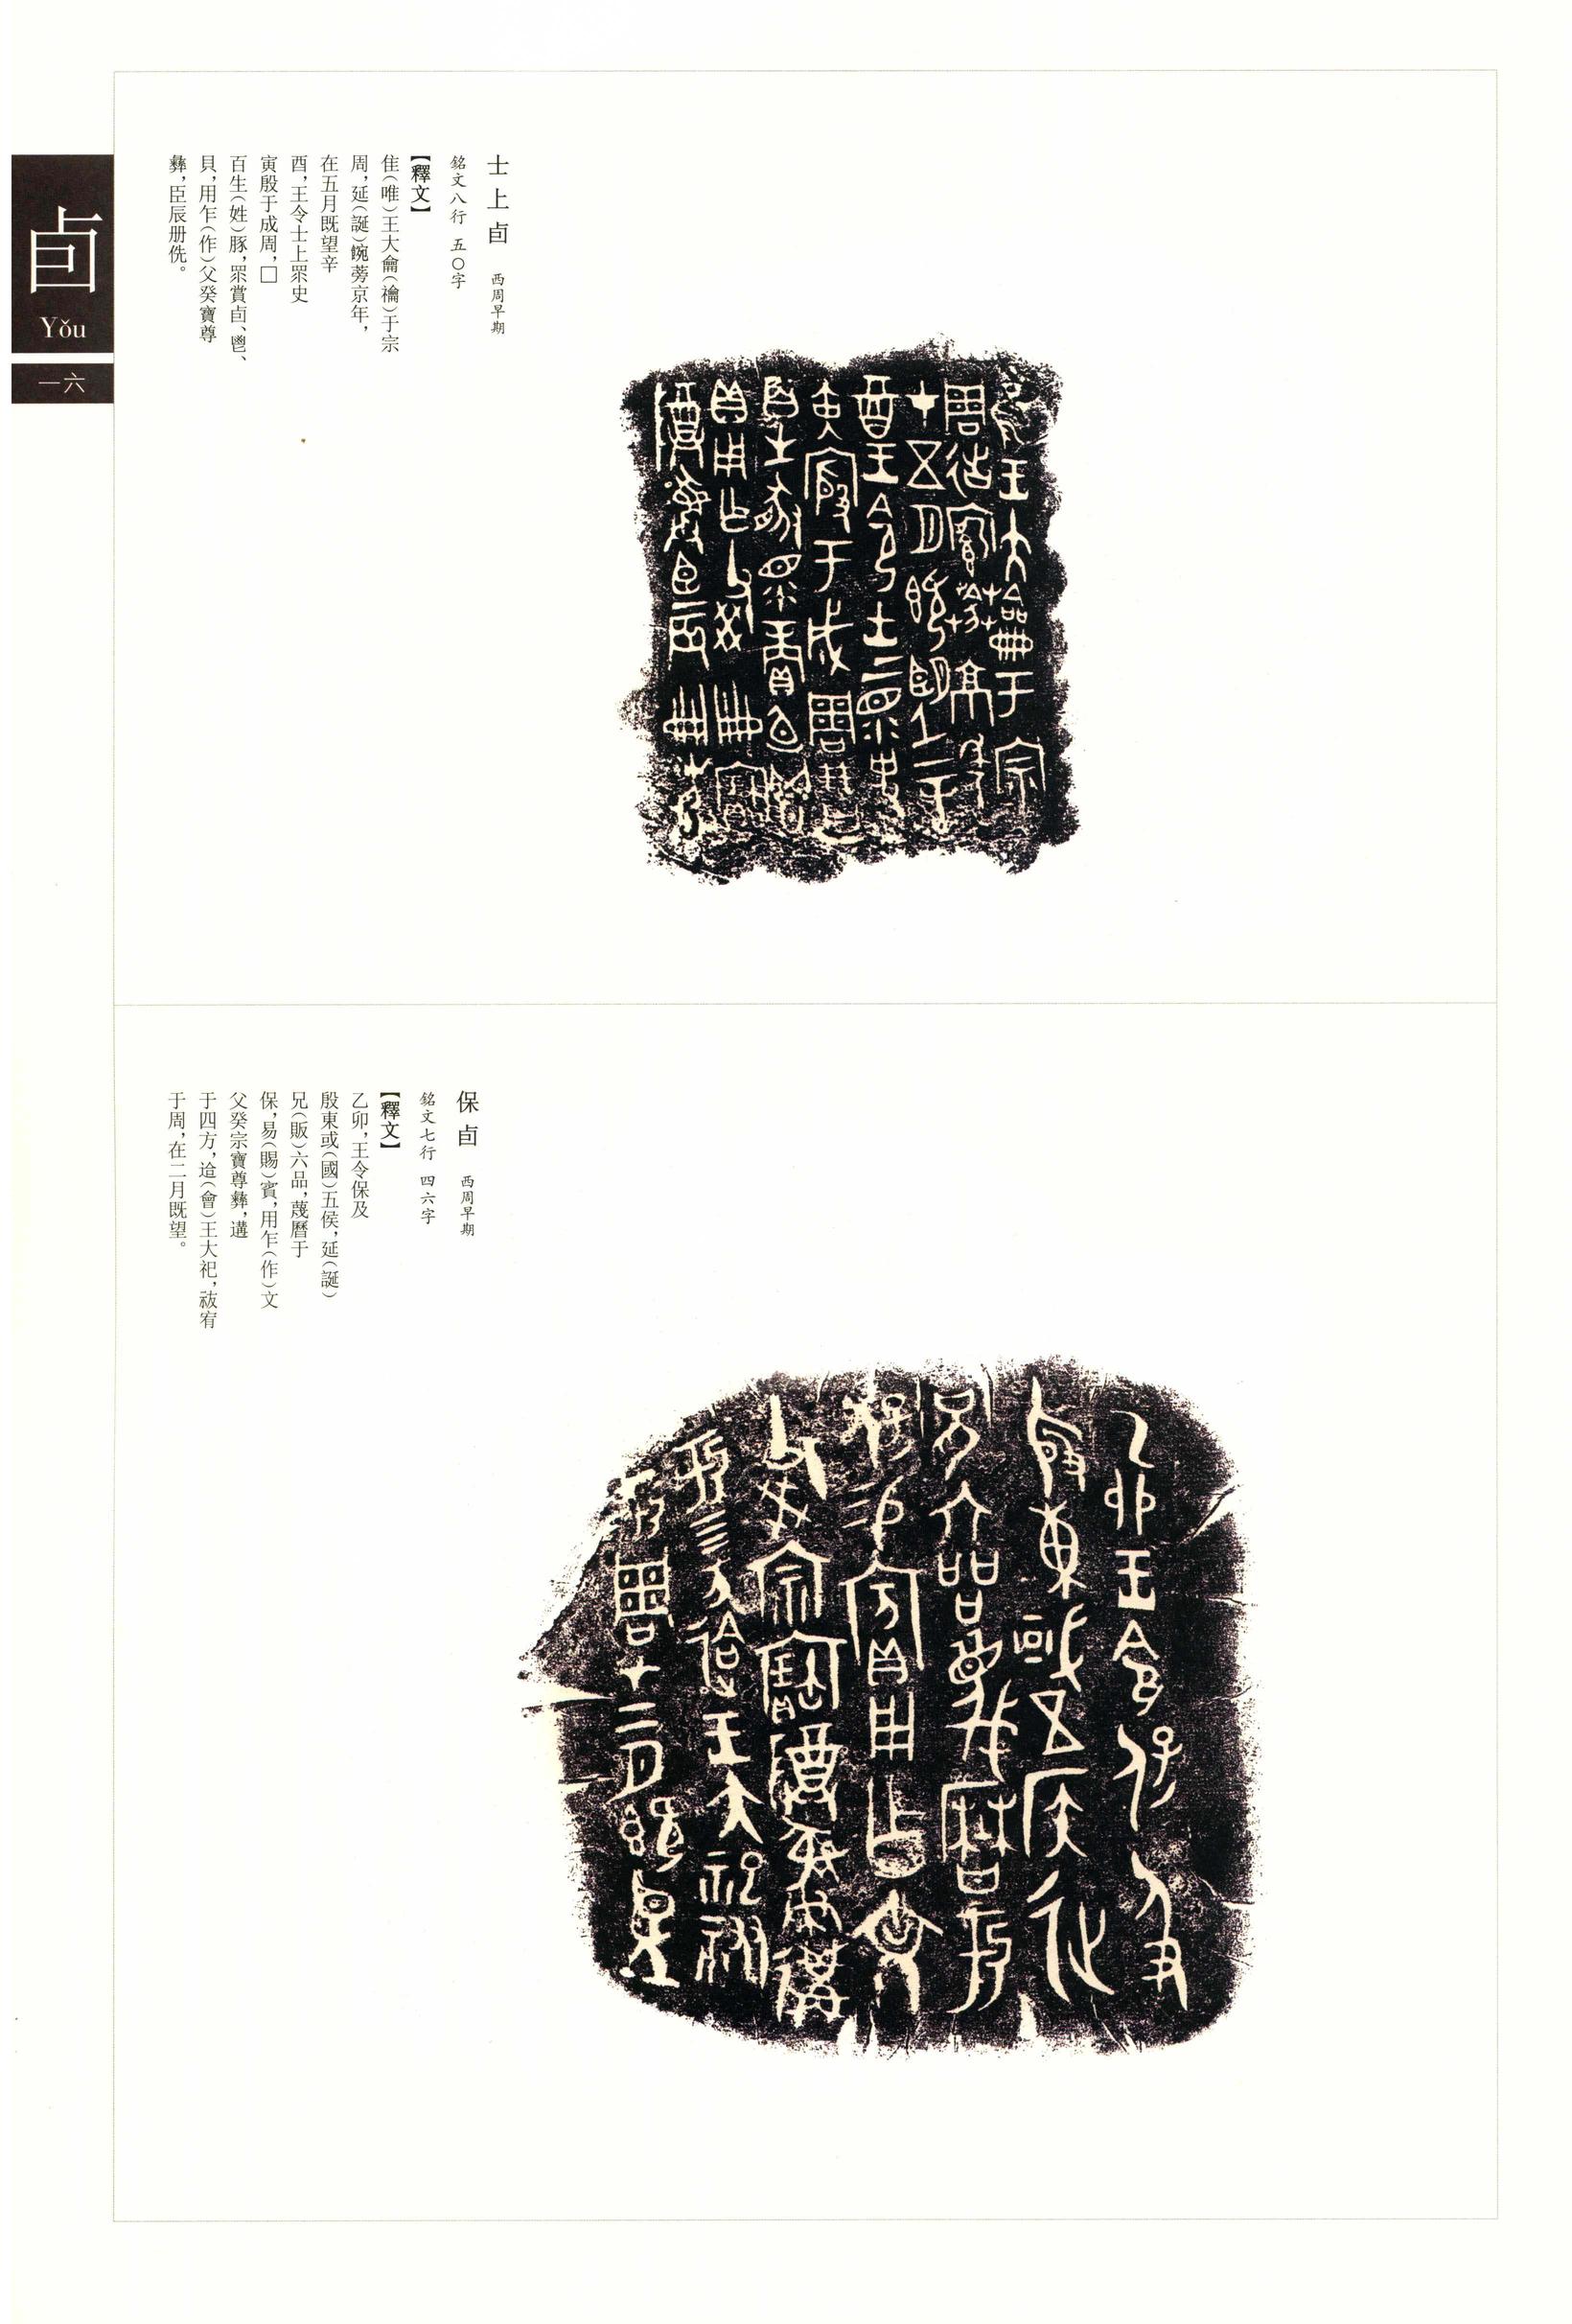 卣
Yǒu
一六
士上卣 西周早期
銘文八行 五〇字
【釋文】
隹（唯）王大龠（禴）于宗
周，延（誕）䬵蒡京年，
在五月既望辛
酉，王令士上眔史
寅殷于成周，□
百生（姓）豚，眔賞卣、鬯、
貝，用乍（作）父癸寶尊
彝，臣辰册侁。
保卣 西周早期
銘文七行 四六字
【釋文】
乙卯，王令保及
殷東或（國）五侯，延（誕）
兄（貺）六品，蔑曆于
保，易（賜）賓，用乍（作）文
父癸宗寶尊彝，遘
于四方，迨（會）王大祀，祓宥
于周，在二月既望。